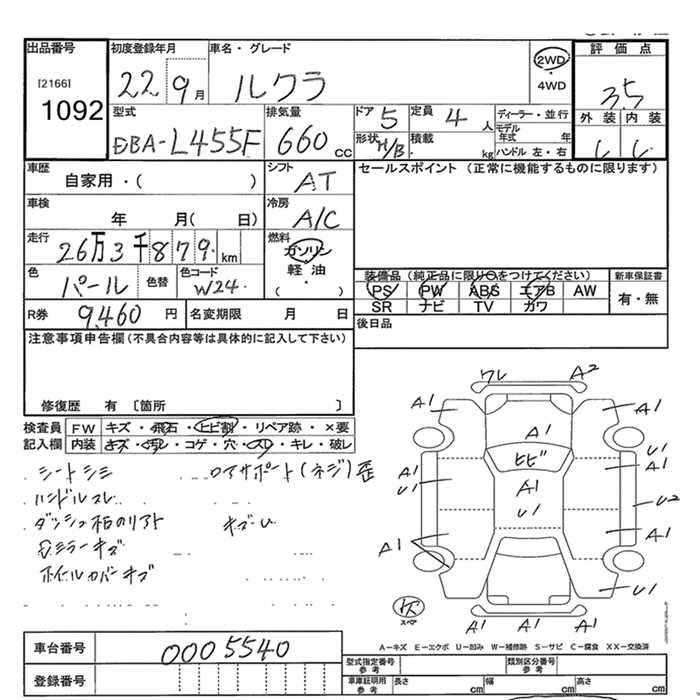 出品番号
[2166]
1092
初度登録年月
22 9月
車名・グレード
ルクラ
2WD
・
4WD
評価点
3.5
型式
DBA-L455F
排気量
660 cc
ドア 5
定員 4 人
形状 H/B
積載 kg
ディーラー・並行
モデル年式 年
ハンドル 左・右
外装 内装
車歴
自家用・( )
シフト
AT
セールスポイント(正常に機能するものに限ります)
車検
年 月( 日)
冷房
A/C
走行
26万3千879 km
燃料
ガソリン
軽油
( )
色
パール
色替
色コード
W24
装備品(純正品に限り○をつけてください)
PS PW ABS エアB AW
SR ナビ TV カワ
新車保証書
有・無
R券
9,460 円
名変期限 月 日
後日品
注意事項申告欄(不具合内容等は具体的に記入して下さい)
修復歴 有〔箇所 〕
検査員 FW キズ・飛石・ヒビ割・リペア跡・×要
記入欄 内装 キズ・汚れ・コゲ・穴・スリ・キレ・破レ
シートシミ
ロアサポート(ネジ)歪
ハンドルスレ
キズ・U
ミラーキズ
ホイルカバーキズ
ワレ A2
A1 A1 A1
ヒビ
A1 A1 A1
U1 U1 U2
A1 A1
U1
スペア
A1 A1 A1
A-キズ E-エクボ U-凹み W-補修跡 S-サビ C-腐食 XX-交換済
車台番号
0005540
登録番号
型式指定番号
参考
類別区分番号
参考
車庫証明用
参考
長さ cm
幅 cm
高さ cm